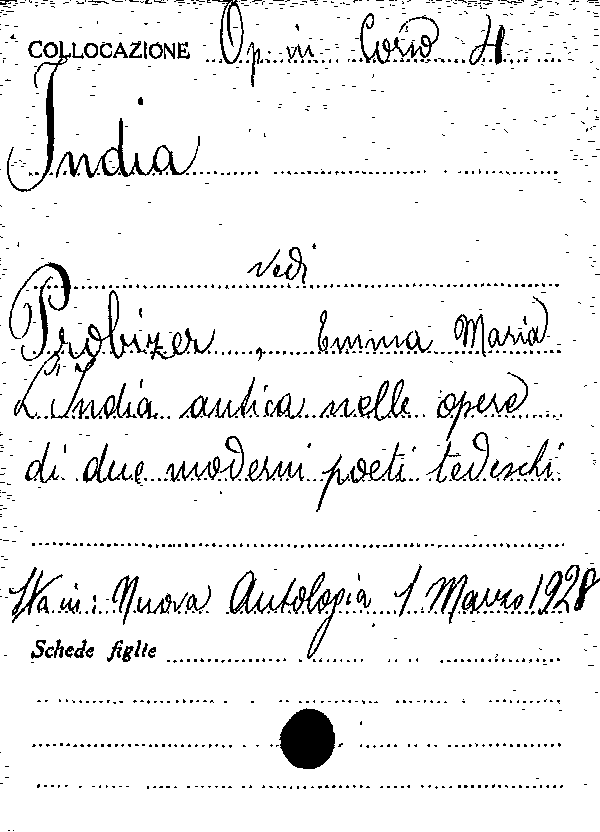 COLLOCAZIONE Op. in Corso 4
India
vedi
Probizer, Emma Maria
L'India antica nelle opere
di due moderni poeti tedeschi
Sta in: Nuova Antologia, 1 Marzo 1928
Schede figlie